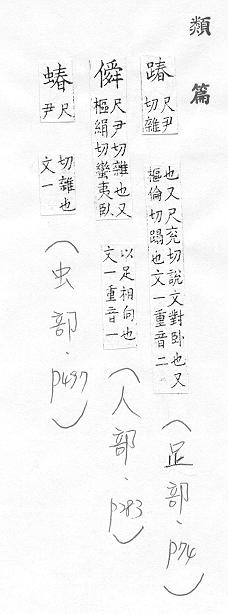 類篇
踳 尺尹切雜也又尺兖切說文對卧也又樞倫切蹋也文一重音二（足部．P74）
僢 尺尹切雜也又樞絹切蠻夷臥以足相向也文一重音一（人部．P283）
蝽 尺尹切雜也文一（虫部．P497）